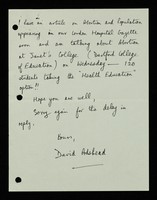 I have an article on Abortion and Population
appearing in our London Hospital Gazette
soon and am talking about abortion
at Janet's College (Dartford College
of Education) on Wednesday — 120
students taking the "Health Education"
option!!
Hope you are well,
Sorry again for the delay in
reply.
Yours,
David Adshead